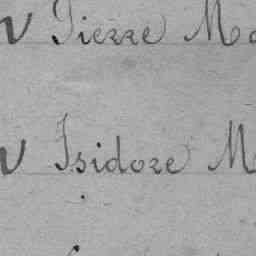 Pierre Ma
Isidore M